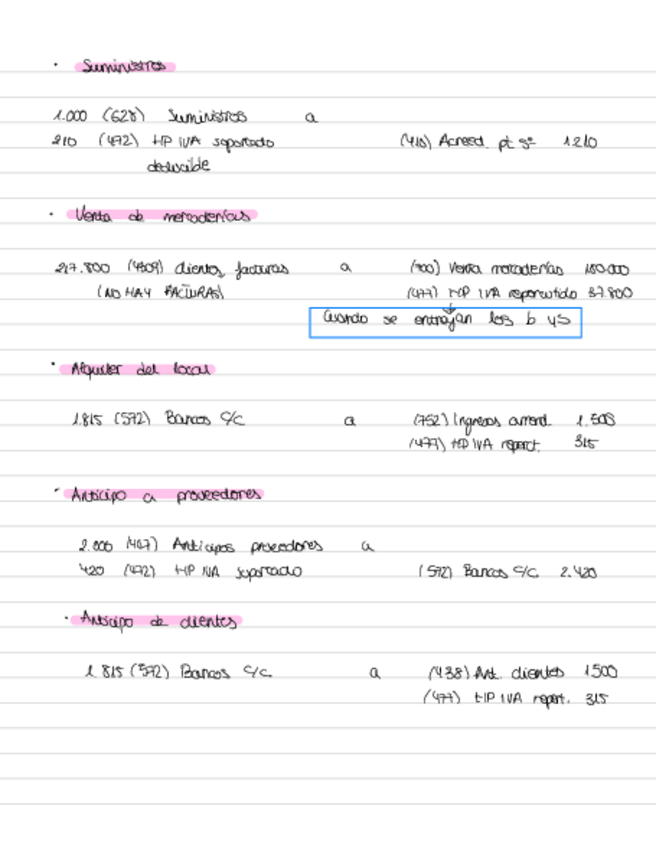 · Suministros
1.000 (628) Suministros a
210 (472) HP IVA soportado (410) Acreed. pt sº 1.210
deducible
· Venta de mercaderías
217.800 (4309) clientes facturas a (700) Venta mercaderías 180.000
(NO HAY FACTURAS) (477) HP IVA repercutido 37.800
Cuando se entregan los b y s
· Alquiler del local
1.815 (572) Bancos c/c a (752) Ingresos arrend. 1.500
(477) HP IVA reperc. 315
· Anticipo a proveedores
2.000 (407) Anticipos proveedores a
420 (472) HP IVA soportado (572) Bancos c/c 2.420
· Anticipo de clientes
1.815 (572) Bancos c/c a (438) Ant. clientes 1500
(477) HP IVA reperc. 315